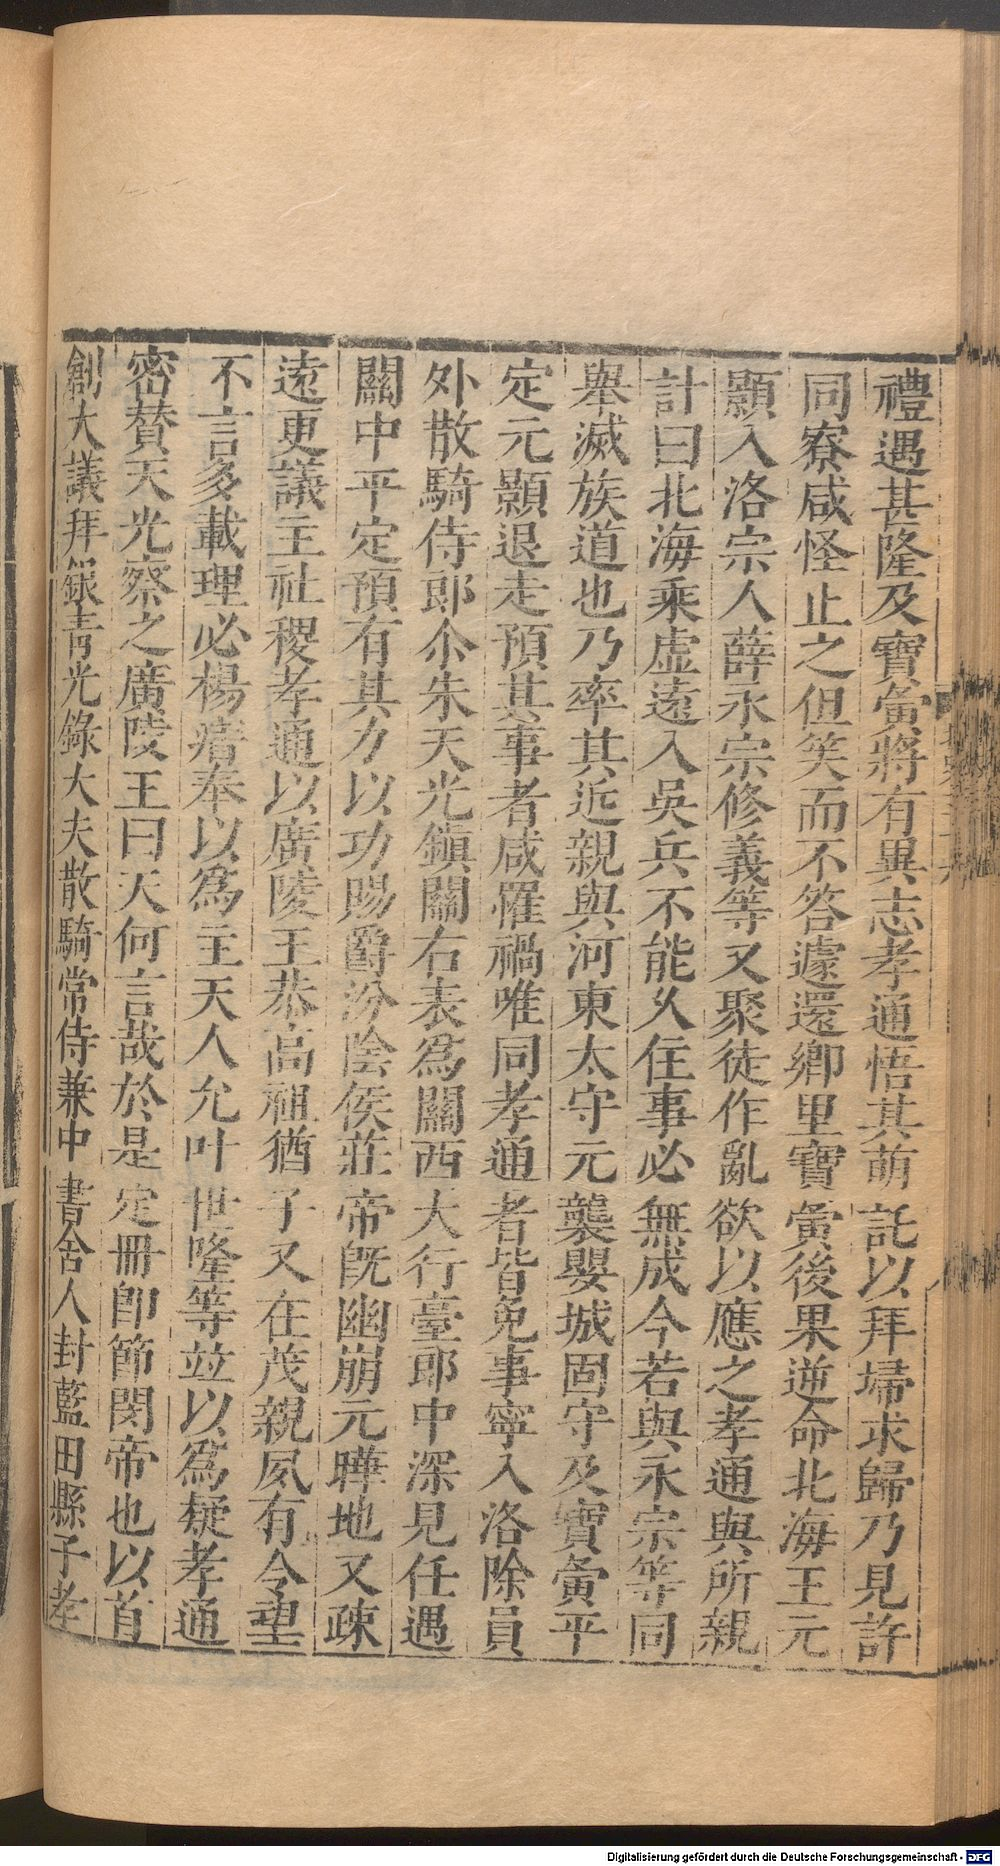 禮遇甚隆及寶夤將有異志孝通悟其萌託以拜埽求歸乃見許
同寮咸怪止之但笑而不答遽還鄉里寶夤後果逆命北海王元
顥入洛宗人薛永宗修義等又聚徒作亂欲以應之孝通與所親
計曰北海乘虛遠入吳兵不能久住事必無成今若與永宗等同
舉滅族道也乃率其近親與河東太守元襲嬰城固守及寶夤平
定元顥退走預其事者咸罹禍唯同孝通者皆免事寧入洛除員
外散騎侍郎尒朱天光鎮關右表爲關西大行臺郎中深見任遇
關中平定預有其力以功賜爵汾陰侯莊帝旣幽崩元曄地又疎
遠更議主社稷孝通以廣陵王恭高祖猶子又在茂親夙有令望
不言多載理必楊瘖奉以爲主天人允叶世隆等竝以爲疑孝通
密贊天光察之廣陵王曰天何言哉於是定冊卽節閔帝也以首
創大議拜銀青光錄大夫散騎常侍兼中書舍人封藍田縣子孝
Digitalisierung gefördert durch die Deutsche Forschungsgemeinschaft - DFG